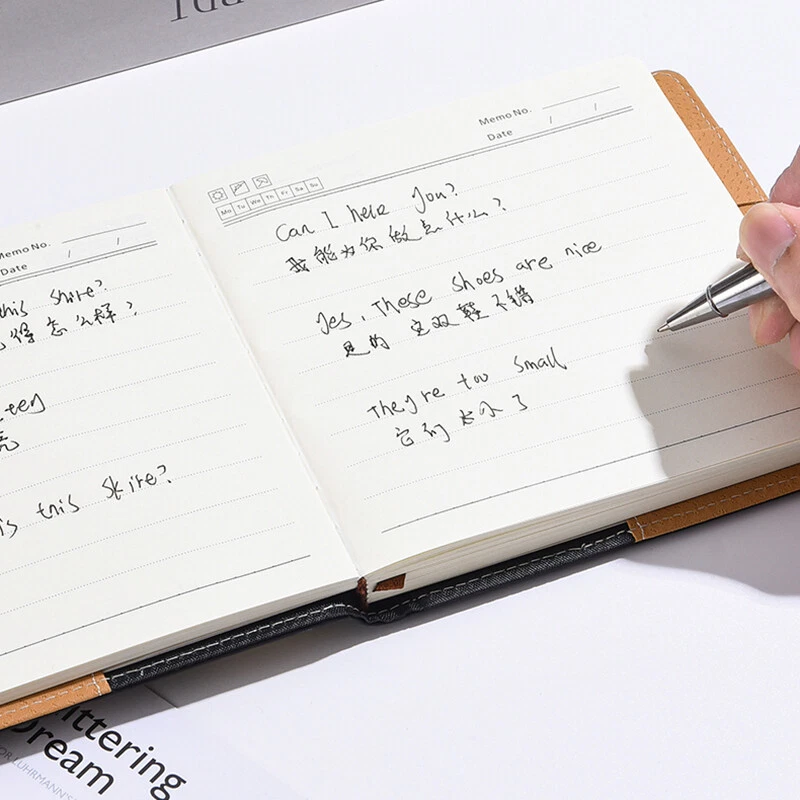 Memo No.
Date / /
this shire?
得怎么样?
亮
is this skire?
Memo No.
Date / /
Mo Tu We Th Fr Sa Su
Can I help you?
我能为你做点什么?
Yes, These shoes are nice
是的 这双鞋不错
They're too small
它们太小了
ittering
Dream
LUHRMANN'S